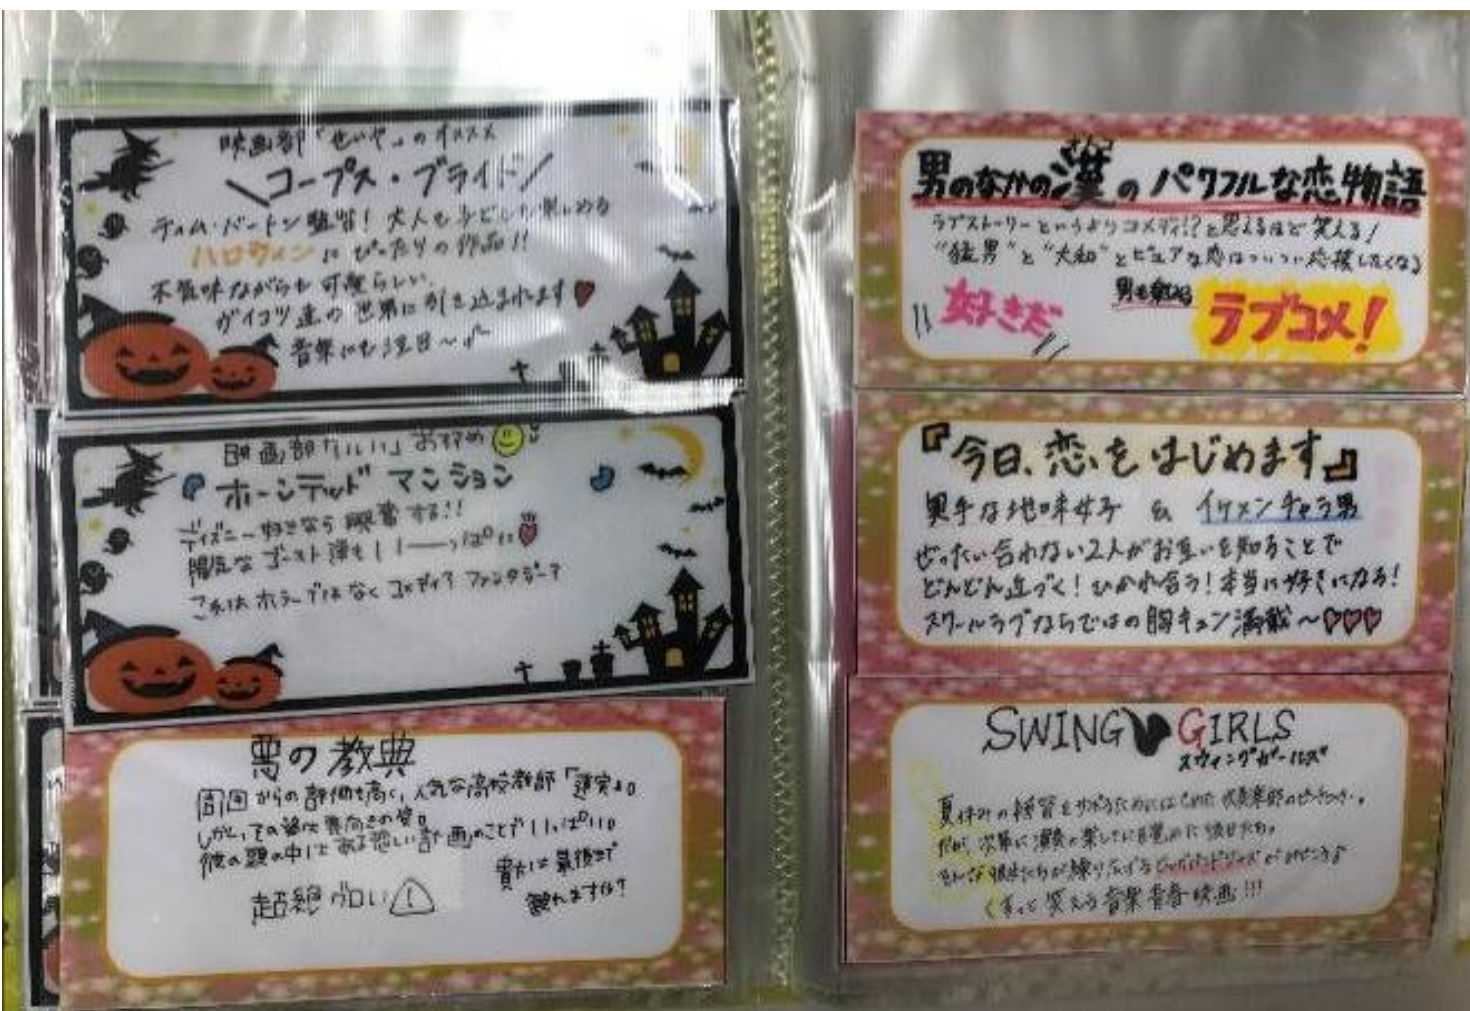 映画部「せいや」のオススメ
コープス・ブライド
ティム・バートン監督! 大人も子どもも楽しめる
ハロウィンにぴったりの作品!!
不気味ながらも可愛らしい
ガイコツ達の世界に引き込まれます
音楽にも注目〜
映画部「いいい」おすすめ
ホーンテッド マンション
ディズニー好きなら興奮する!!
陽気なゴースト達もいーーっぱいに
これはホラーではなくコメディ?ファンタジー?
悪の教典
周囲からの評価も高く、人気な高校教師「蓮実」。
しかしその姿は表向きの姿。
彼の頭の中はある恐しい計画のことでいっぱい。
貴方は最後まで
観れますか?
超絶グロい
男のなかの漢のパワフルな恋物語
おとこ
ラブストーリーというよりコメディ!?と思えるほど笑える!
“猛男”と“大和”とピュアな恋はついつい応援したくなる
好きだ
男も観れる
ラブコメ!
『今日、恋をはじめます』
奥手な地味女子 & イケメンチャラ男
ぜったい合わない2人がお互いを知ることで
どんどん近づく!ひかれ合う!本当に好きになる!
スクールラブならではの胸キュン満載〜
SWING GIRLS
スウィングガールズ
夏休みの補習をサボるためにはじめた吹奏楽部のピンチヒッター。
だが、次第に演奏の楽しさに目覚めた彼女たち。
そんな彼女たちが繰り広げるビッグバンドジャズがみどころ
くすっと笑える音楽青春映画!!!